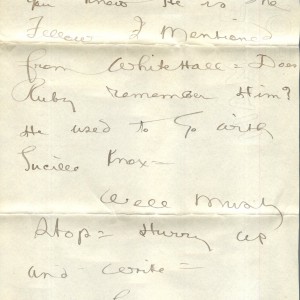 you know he is the
Fellow I Mentioned
from WhiteHall = Does
Ruby remember Him?
He used to Go with
Lucille Knox =
Well Must
Stop = Hurry up
and write =